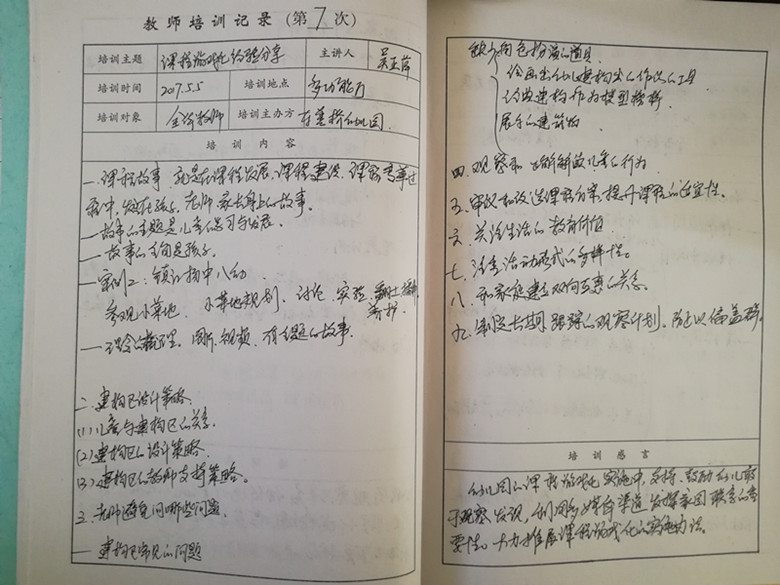 教师培训记录(第7次)
培训主题 课程游戏化经验分享 主讲人 吴正萍
培训时间 2017.5.5 培训地点 多功能厅
培训对象 全体教师 培训主办方 幼儿园
培训内容
一、课程故事 就是在课程发展、课程建设、课程变革过
程中,发生在孩子、老师、家长身上的故事。
一故事的主题是儿童的学习与发展。
一故事的主角是孩子。
一案例二:镇江扬中八幼
参观小菜地、小菜地规划、讨论、实验、翻土播种
一理念的梳理、图片、视频、有主题的故事
二、建构区设计策略
(1)儿童与建构区的关系。
(2)建构区的设计策略
(3)建构区的教师支持策略。
三、老师避免问哪些问题。
一建构区常见的问题
缺少角色扮演的道具
绘画出幼儿建构出的作品的工具
展示的建筑物
四、观察和正确解放儿童的行为
五、审议和改造课程方案,提升课程的适宜性。
六、关注生活的教育价值
七、注重活动形式的多样性。
八、和家庭建立双向互惠的关系。
九、制定长期跟踪的观察计划,防止以偏盖全。
培训感言
幼儿园的课程游戏化实施中,支持、鼓励幼儿敢
于观察、发现,利用多媒介渠道发挥家园联系的重
要性。大力推展课程游戏化的实施